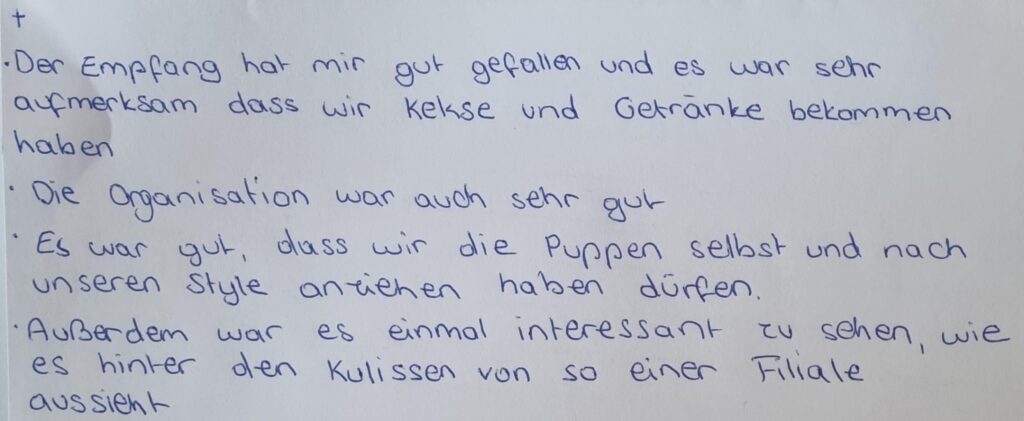 +
· Der Empfang hat mir gut gefallen und es war sehr
aufmerksam dass wir Kekse und Getränke bekommen
haben
· Die Organisation war auch sehr gut
· Es war gut, dass wir die Puppen selbst und nach
unseren Style anziehen haben dürfen.
· Außerdem war es einmal interessant zu sehen, wie
es hinter den Kulissen von so einer Filiale
aussieht